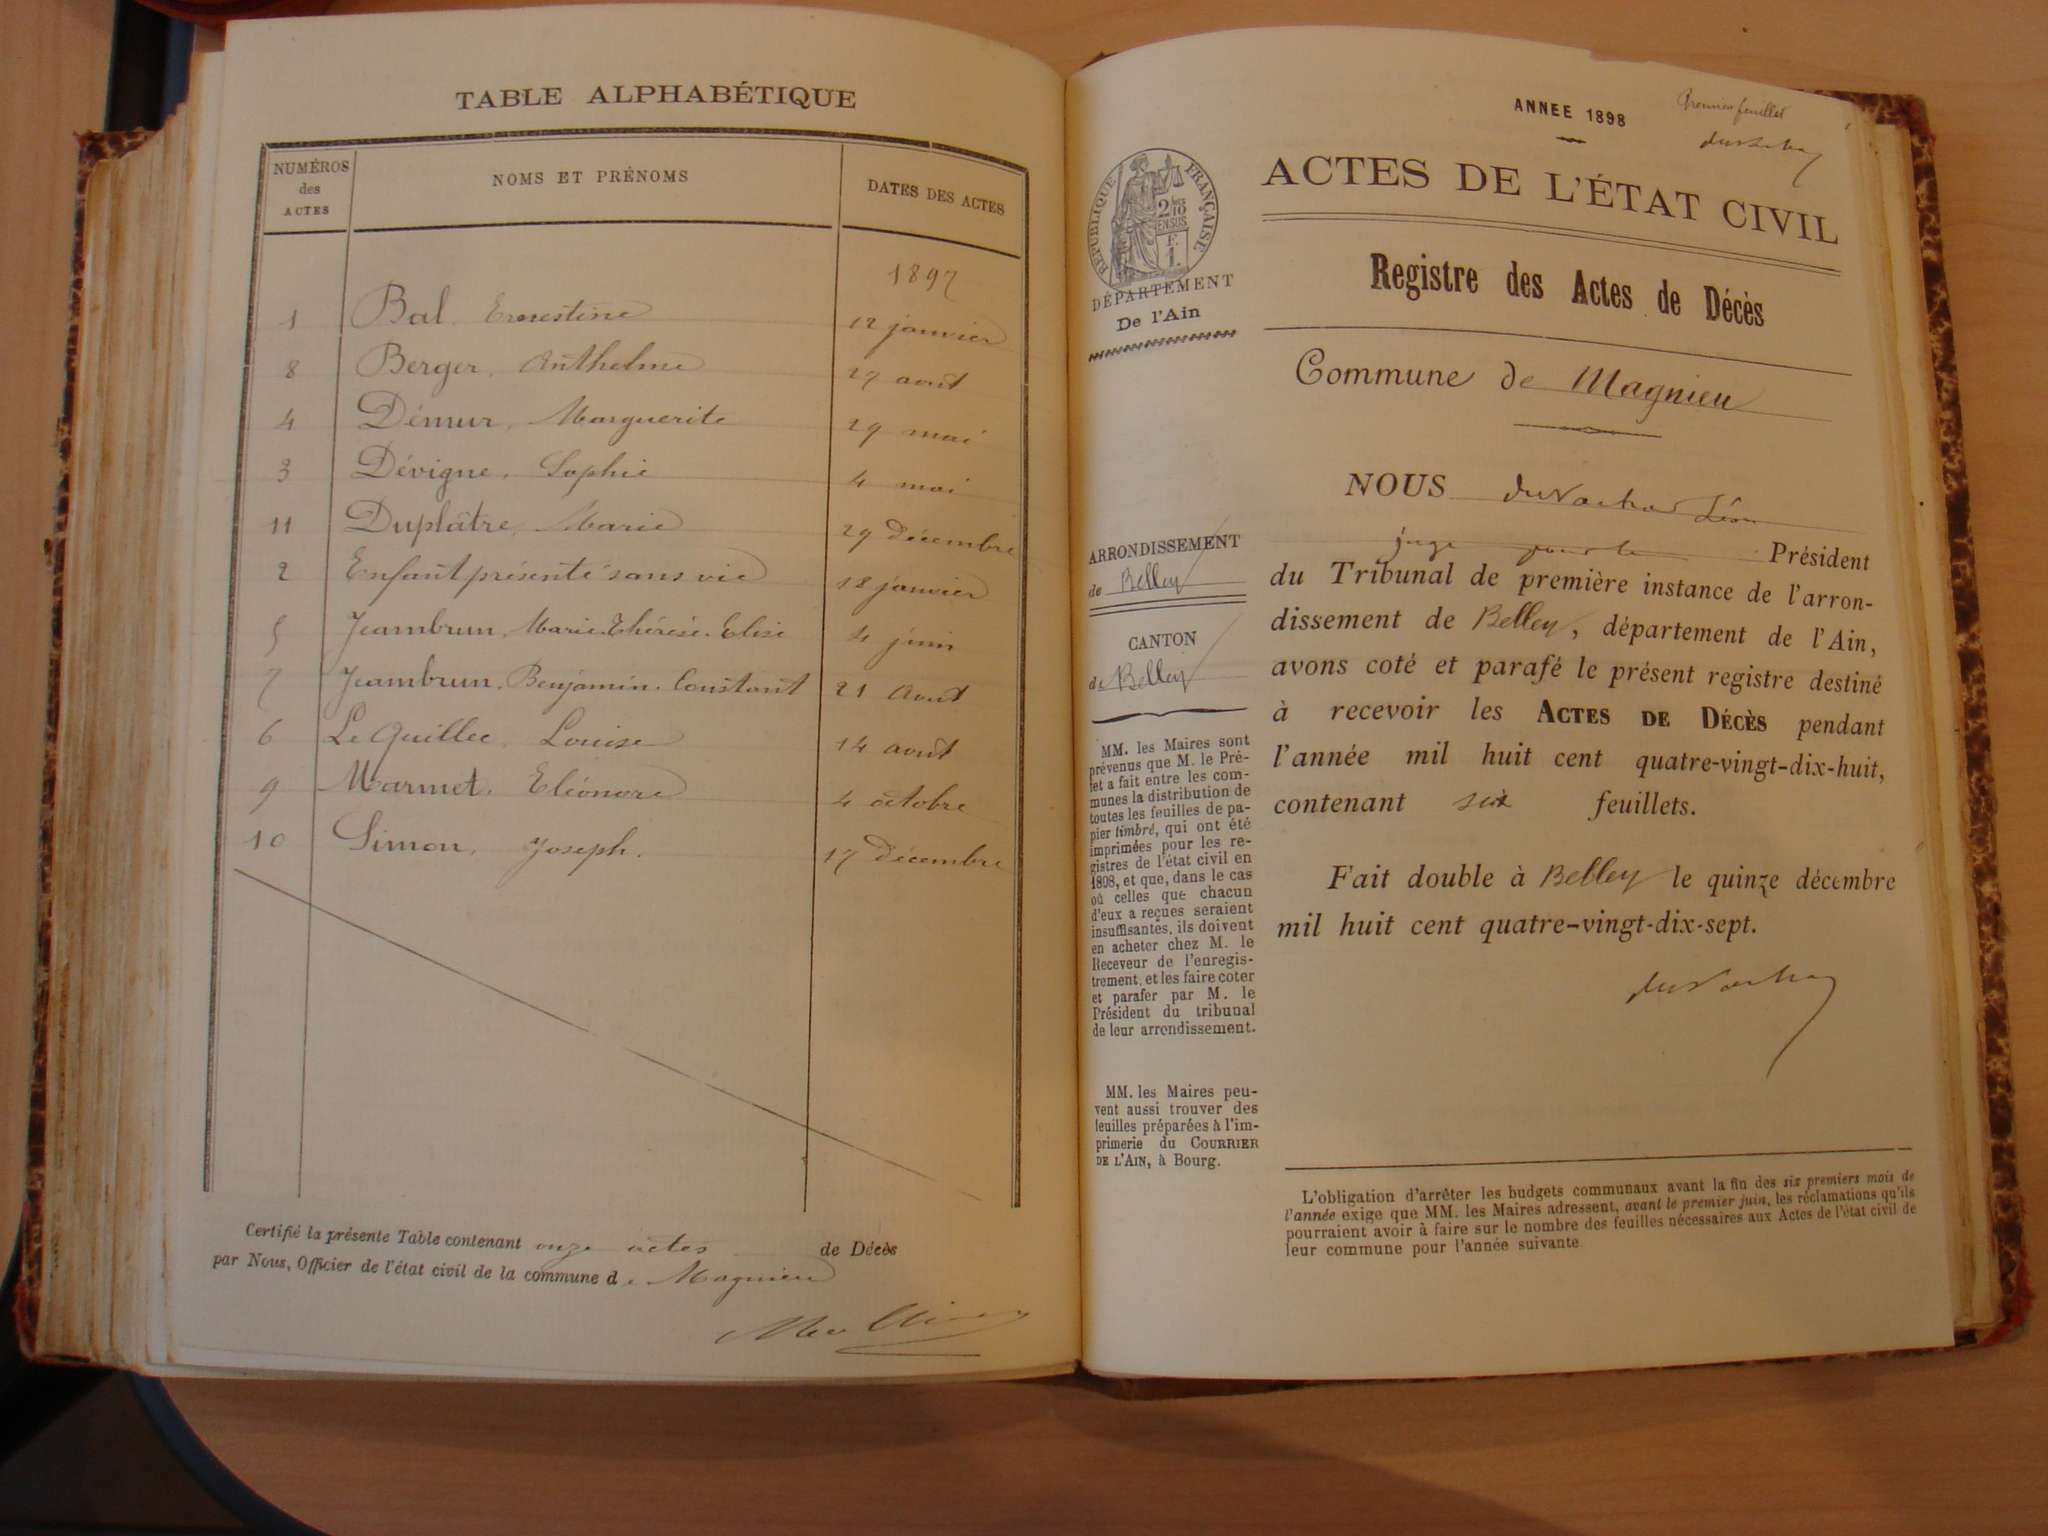 TABLE ALPHABÉTIQUE
NUMÉROS des ACTES NOMS ET PRÉNOMS DATES DES ACTES
1897
1 Bal. Ernestine 12 janvier
8 Berger. Anthelme 27 aout
4 Démur, Marguerite 29 mai
3 Dévigne, Sophie 4 mai
11 Duplâtre, Marie 29 décembre
2 Enfant présenté sans vie 18 janvier
5 Jeambrun, Marie. Thérèse. Elise 4 juin
7 Jeambrun. Benjamin. Constant 21 Aout
6 Le Quillec, Louise 14 aout
9 Marmet. Eléonore 4 octobre
10 Simon, Joseph. 17 décembre
Certifié la présente Table contenant onze actes de Décès
par Nous, Officier de l'état civil de la commune de Magnieu
ANNEE 1898
Premier feuillet
ACTES DE L'ÉTAT CIVIL
RÉPUBLIQUE FRANÇAISE
2/10 EN SUS
F. 1.
DÉPARTEMENT
De l'Ain
Registre des Actes de Décès
Commune de Magnieu
ARRONDISSEMENT
de Belley
CANTON
de Belley
MM. les Maires sont
prévenus que M. le Pré-
fet a fait entre les com-
munes la distribution de
toutes les feuilles de pa-
pier timbré, qui ont été
imprimées pour les re-
gistres de l'état civil en
1898, et que, dans le cas
où celles que chacun
d'eux a reçues seraient
insuffisantes, ils doivent
en acheter chez M. le
Receveur de l'enregis-
trement, et les faire coter
et parafer par M. le
Président du tribunal
de leur arrondissement.
MM. les Maires peu-
vent aussi trouver des
feuilles préparées à l'im-
primerie du COURRIER
DE L'AIN, à Bourg.
NOUS Léon
juge pour le Président
du Tribunal de première instance de l'arron-
dissement de Belley, département de l'Ain,
avons coté et parafé le présent registre destiné
à recevoir les ACTES DE DÉCÈS pendant
l'année mil huit cent quatre-vingt-dix-huit,
contenant six feuillets.
Fait double à Belley le quinze décembre
mil huit cent quatre-vingt-dix-sept.
L'obligation d'arrêter les budgets communaux avant la fin des six premiers mois de
l'année exige que MM. les Maires adressent, avant le premier juin, les réclamations qu'ils
pourraient avoir à faire sur le nombre des feuilles nécessaires aux Actes de l'état civil de
leur commune pour l'année suivante